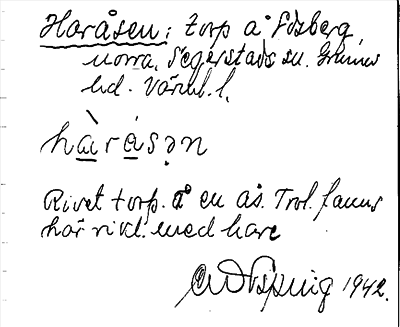 Haråsen: torp å Edsberg,
norra, Segerstads sn. Grums
hd. Värml. l.
hàråsən
Rivet torp. å en ås. Trol. fanns
här rikl. med hare
1942.